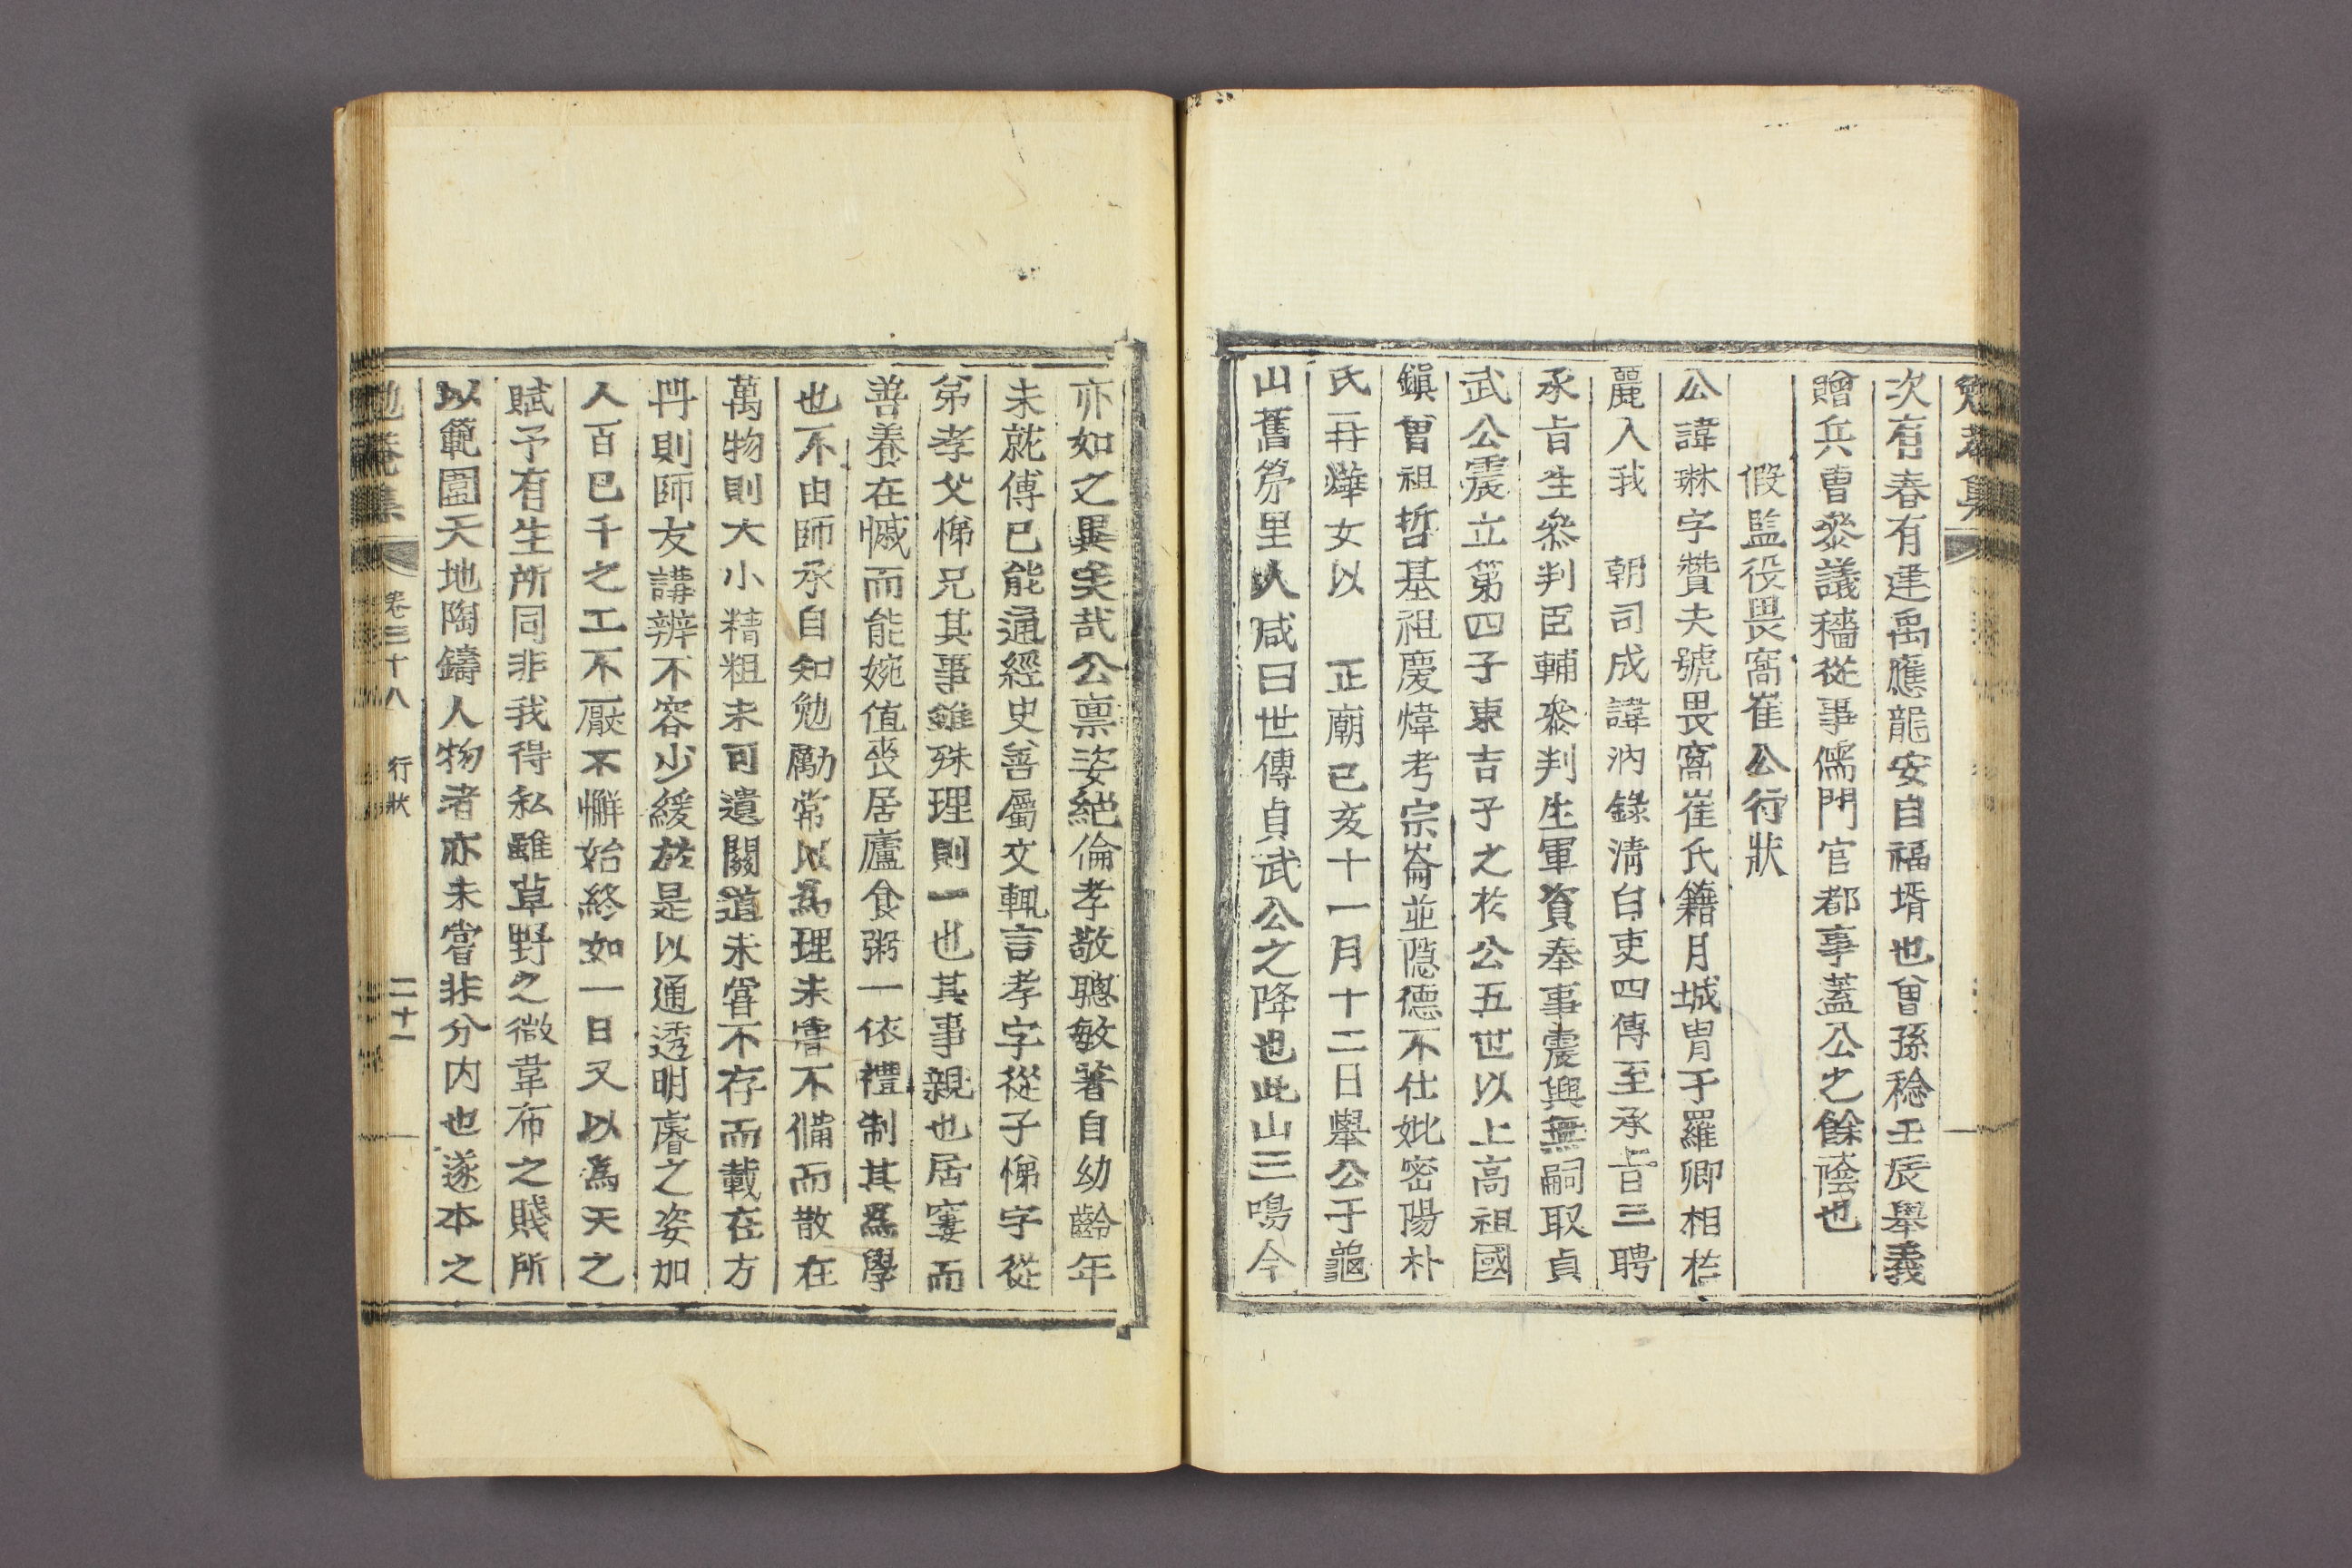 勉菴集
次有春有建禹應龍安自福壻也曾孫稔壬辰舉義
贈兵曹叅議穡從事儒門官都事蓋公之餘蔭也
假監役畏窩崔公行狀
公諱琳字贊夫號畏窩崔氏籍月城冑于羅卿相於
麗入我　朝司成諱汭錄淸白吏四傳至承旨三聘
承旨生叅判臣輔叅判生軍資奉事震興無嗣取貞
武公震立第四子東吉子之於公五世以上高祖國
鎭曾祖哲基祖慶煒考宗崙並隱德不仕妣密陽朴
氏再燁女以　正廟己亥十一月十二日舉公于龜
山舊第里人咸曰世傳貞武公之降也此山三鳴今
亦如之異矣哉公禀姿絕倫孝敬聰敏著自幼齡年
未就傅已能通經史善屬文輒言孝字從子悌字從
弟孝父悌兄其事雖殊理則一也其事親也居窶而
善養在慽而能婉值喪居廬食粥一依禮制其爲學
也不由師承自知勉勵常以爲理未嘗不備而散在
萬物則大小精粗未可遺闕道未嘗不存而載在方
冊則師友講辨不容少緩於是以通透明睿之姿加
人百己千之工不厭不懈始終如一日又以爲天之
賦予有生所同非我得私雖草野之微韋布之賤所
以範圍天地陶鑄人物者亦未嘗非分內也遂本之
勉菴集　卷三十八　行狀　二十一